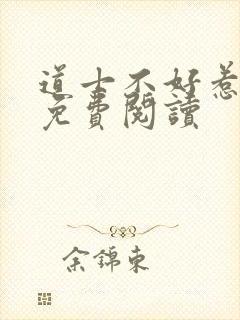 道士不好惹
免費閱讀
余錦東